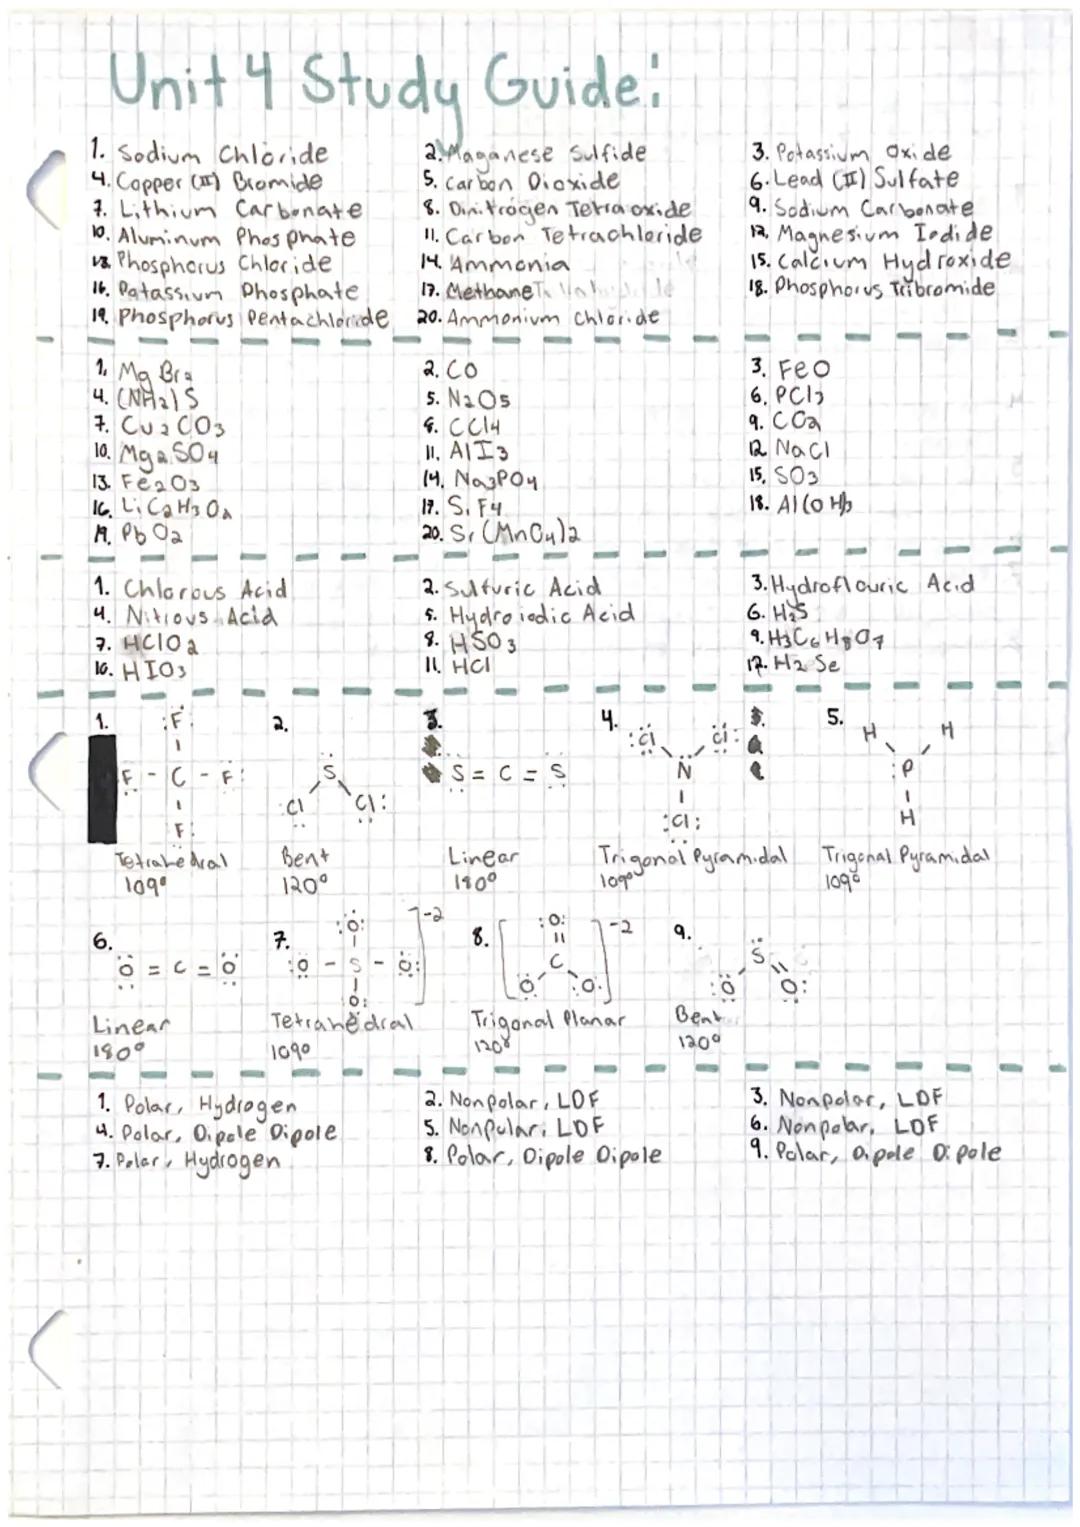 Unit 4 Study Guide:
1. Sodium Chloride 2. Maganese Sulfide 3. Potassium Oxide
4. Copper (II) Bromide 5. Carbon Dioxide 6. Lead (II) Sulfate
7. Lithium Carbonate 8. Dinitrogen Tetraoxide 9. Sodium Carbonate
10. Aluminum Phosphate 11. Carbon Tetrachloride 12. Magnesium Iodide
13. Phosphorus Chloride 14. Ammonia 15. Calcium Hydroxide
16. Potassium Phosphate 17. Methane 18. Phosphorus Tribromide
19. Phosphorus Pentachloride 20. Ammonium Chloride
1. MgBr2 2. CO 3. FeO
4. (NH2)S 5. N2O5 6. PCl3
7. Cu2CO3 8. CCl4 9. CO2
10. Mg2SO4 11. AlI3 12. NaCl
13. Fe2O3 14. Na3PO4 15. SO3
16. LiC2H3O2 17. SiF4 18. Al(OH)3
19. PbO2 20. Sr(MnO4)2
1. Chlorous Acid 2. Sulfuric Acid 3. Hydroflouric Acid
4. Nitrous Acid 5. Hydroiodic Acid 6. H2S
7. HClO2 8. HSO3 9. H3C6H8O7
10. HIO3 11. HCl 12. H2Se
1. 2. 3. 4. 5.
:F:
Cl Cl: H H
F - C - F: S S = C = S N :P
Cl Cl: :Cl: H
F:
Tetrahedral Bent Linear Trigonal Pyramidal Trigonal Pyramidal
109° 120° 180° 109° 109°
6. 7. 8. 9.
:O: -2 :O: -2
O = C = O :O - S - O: C S
:O: O O: :O O:
Linear Tetrahedral Trigonal Planar Bent
180° 109° 120° 120°
1. Polar, Hydrogen 2. Nonpolar, LDF 3. Nonpolar, LDF
4. Polar, Dipole Dipole 5. Nonpolar, LDF 6. Nonpolar, LDF
7. Polar, Hydrogen 8. Polar, Dipole Dipole 9. Polar, Dipole Dipole